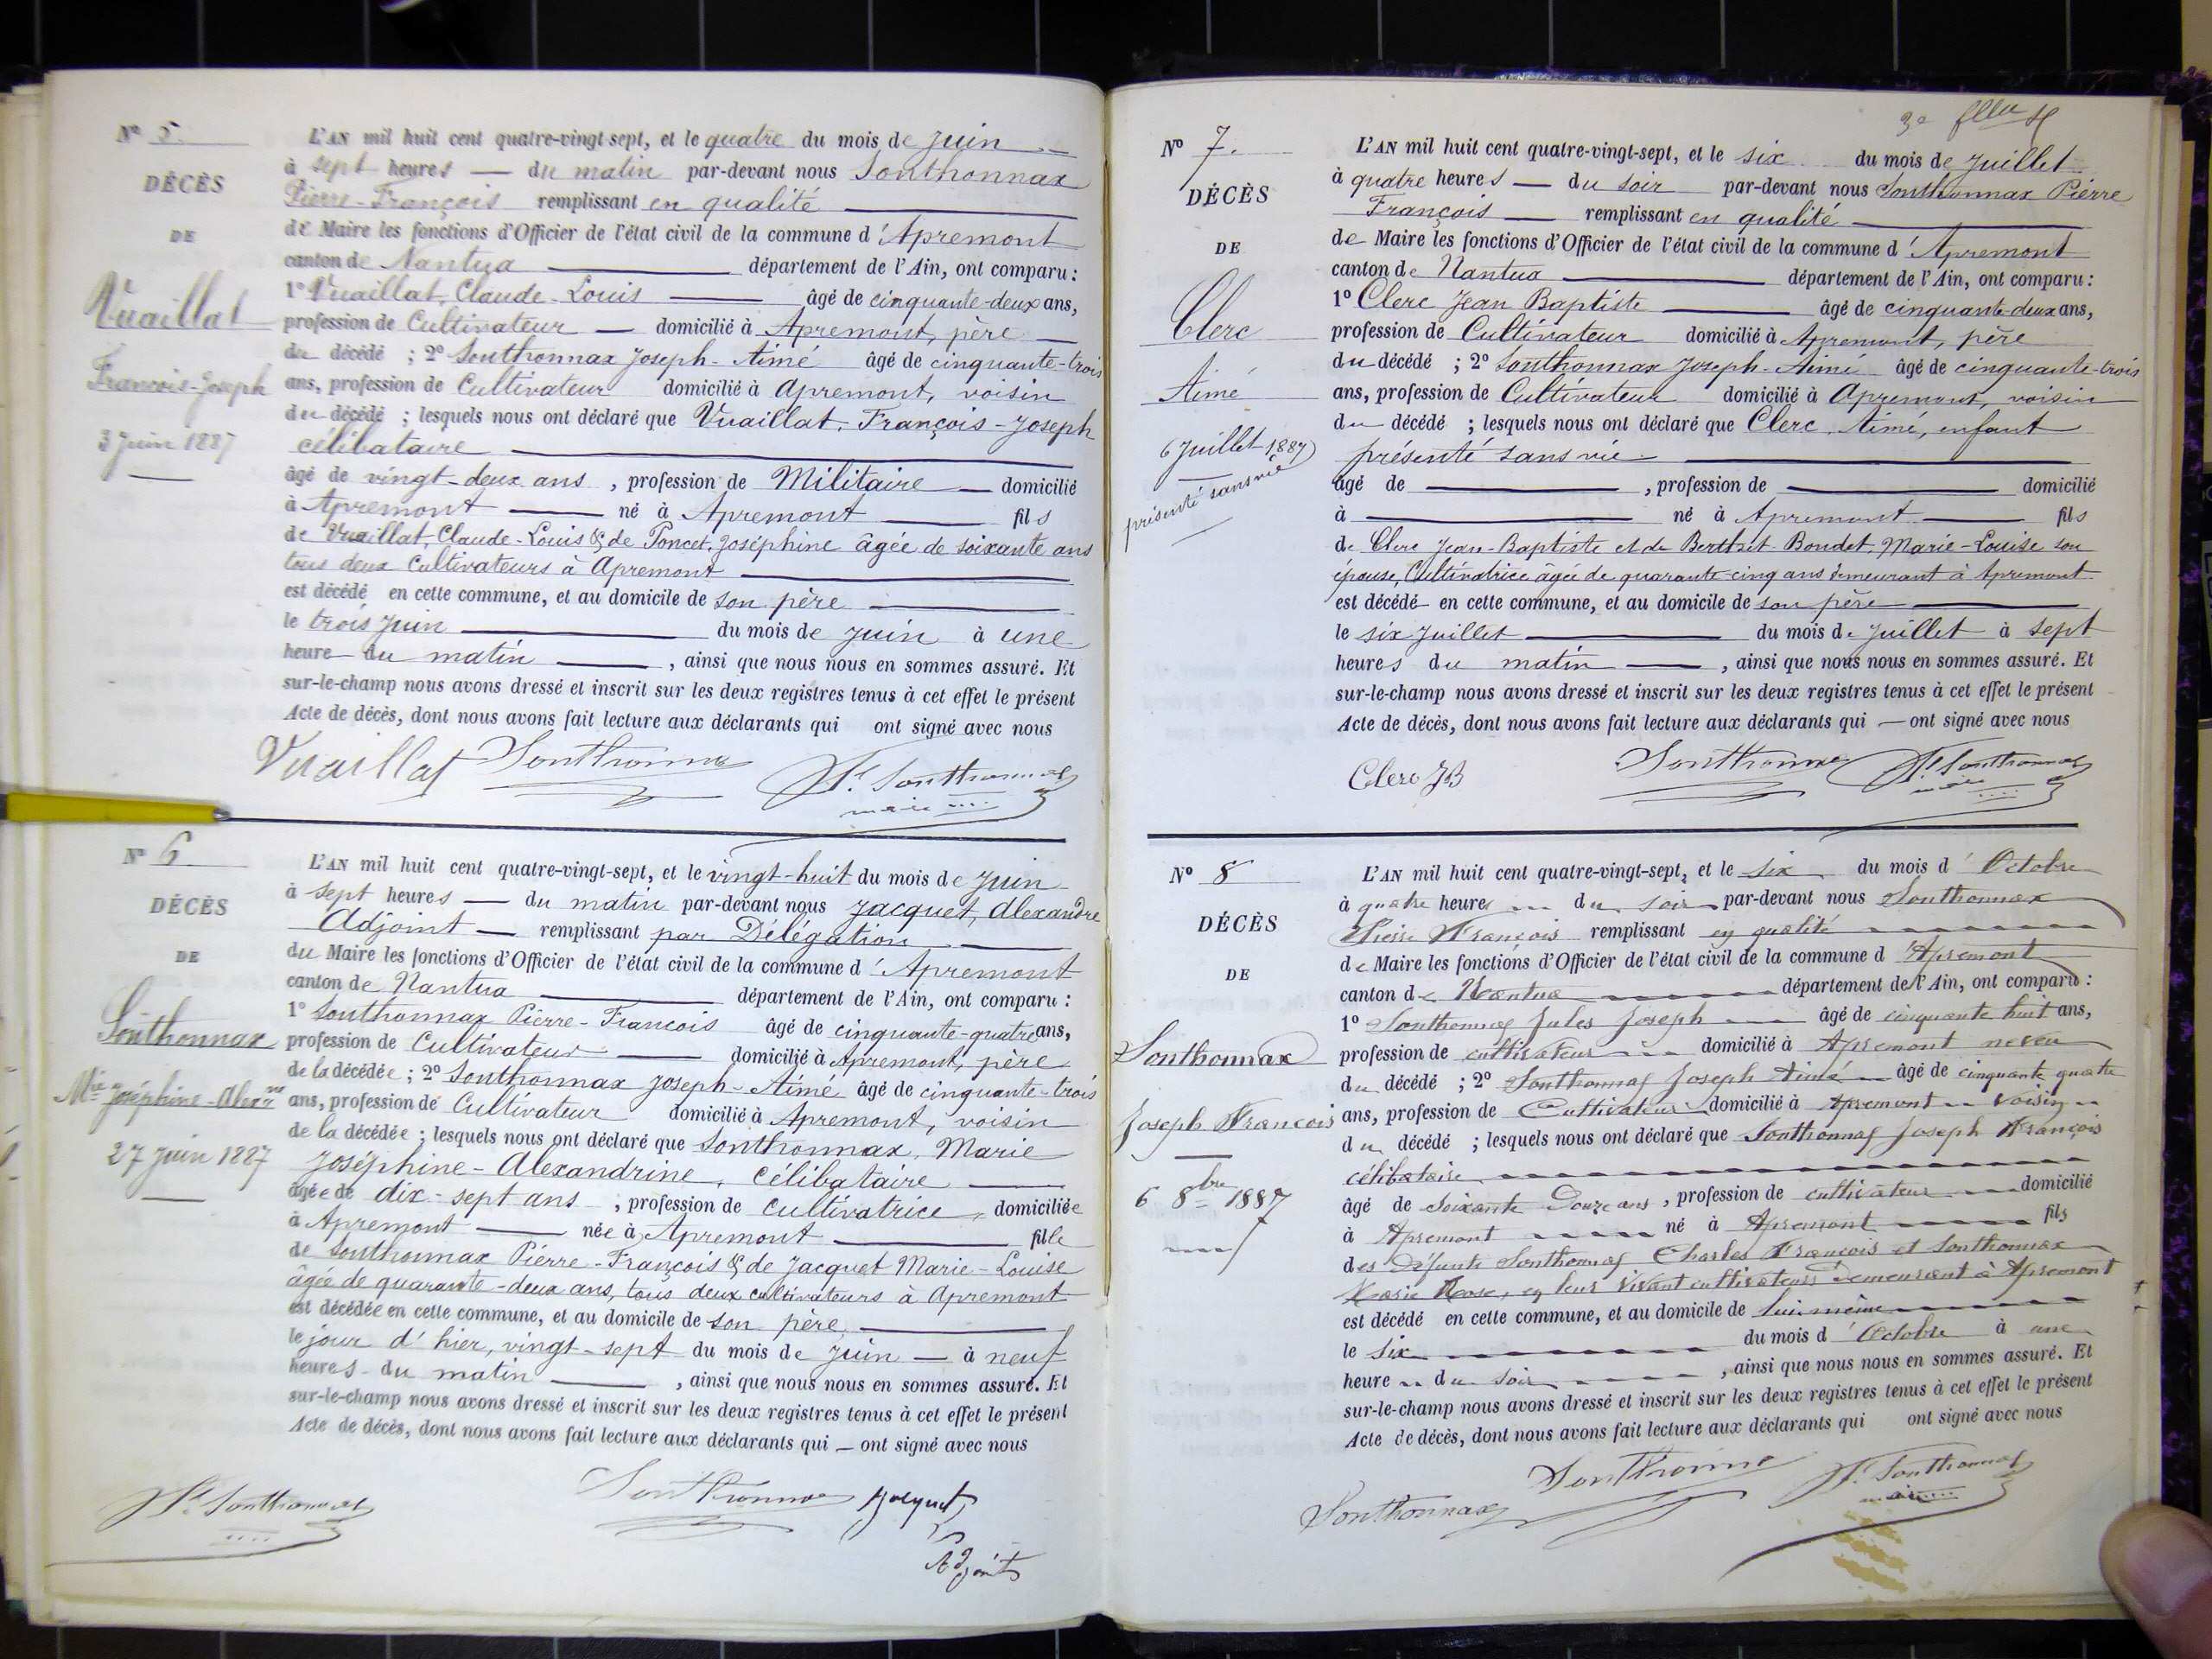 Nº 5.
DÉCÈS
DE
Vuaillat
François-Joseph
3 Juin 1887
L'AN mil huit cent quatre-vingt sept, et le quatre du mois de Juin
à sept heures — du matin par-devant nous Sonthonnax
Pierre-François remplissant en qualité
de Maire les fonctions d'Officier de l'état civil de la commune d'Apremont
canton de Nantua département de l'Ain, ont comparu :
1º Vuaillat, Claude-Louis âgé de cinquante-deux ans,
profession de Cultivateur — domicilié à Apremont, père
du décédé ; 2º Sonthonnax Joseph-Aimé âgé de cinquante-trois
ans, profession de Cultivateur domicilié à Apremont, voisin
du décédé ; lesquels nous ont déclaré que Vuaillat, François-Joseph
célibataire
âgé de vingt-deux ans, profession de Militaire — domicilié
à Apremont né à Apremont fils
de Vuaillat, Claude-Louis & de Poncet, Joséphine âgée de soixante ans
tous deux Cultivateurs à Apremont
est décédé en cette commune, et au domicile de son père
le trois Juin du mois de Juin à une
heure du matin, ainsi que nous nous en sommes assuré. Et
sur-le-champ nous avons dressé et inscrit sur les deux registres tenus à cet effet le présent
Acte de décès, dont nous avons fait lecture aux déclarants qui ont signé avec nous
Vuaillat Sonthonnax Sonthonnax
maire
Nº 6
DÉCÈS
DE
Sonthonnax
Mie Joséphine-Alexne
27 Juin 1887
L'AN mil huit cent quatre-vingt-sept, et le vingt-huit du mois de Juin
à sept heures — du matin par-devant nous Jacquet, Alexandre
Adjoint — remplissant par Délégation
du Maire les fonctions d'Officier de l'état civil de la commune d'Apremont
canton de Nantua département de l'Ain, ont comparu :
1º Sonthonnax Pierre-François âgé de cinquante-quatre ans,
profession de Cultivateur domicilié à Apremont, père
de la décédée ; 2º Sonthonnax Joseph-Aimé âgé de cinquante-trois
ans, profession de Cultivateur domicilié à Apremont, voisin
de la décédée ; lesquels nous ont déclaré que Sonthonnax, Marie
Joséphine-Alexandrine, célibataire
âgée de dix-sept ans, profession de cultivatrice, domiciliée
à Apremont née à Apremont fille
de Sonthonnax Pierre-François & de Jacquet Marie-Louise
âgée de quarante-deux ans, tous deux cultivateurs à Apremont
est décédée en cette commune, et au domicile de son père
le jour d'hier, vingt-sept du mois de Juin — à neuf
heures du matin, ainsi que nous nous en sommes assuré. Et
sur-le-champ nous avons dressé et inscrit sur les deux registres tenus à cet effet le présent
Acte de décès, dont nous avons fait lecture aux déclarants qui — ont signé avec nous
Sonthonnax Sonthonnax Jacquet
Adjoint
Nº 7.
DÉCÈS
DE
Clerc
Aimé
6 Juillet 1887
présenté sans vie
L'AN mil huit cent quatre-vingt-sept, et le six du mois de Juillet
à quatre heures — du soir par-devant nous Sonthonnax Pierre
François — remplissant en qualité
de Maire les fonctions d'Officier de l'état civil de la commune d'Apremont
canton de Nantua département de l'Ain, ont comparu :
1º Clerc Jean Baptiste âgé de cinquante-deux ans,
profession de Cultivateur domicilié à Apremont, père
du décédé ; 2º Sonthonnax Joseph-Aimé âgé de cinquante-trois
ans, profession de Cultivateur domicilié à Apremont, voisin
du décédé ; lesquels nous ont déclaré que Clerc, Aimé, enfant
présenté sans vie
âgé de , profession de domicilié
à né à Apremont fils
de Clerc Jean-Baptiste et de Berthet-Bondet, Marie-Louise son
épouse, Cultivatrice âgée de quarante-cinq ans demeurant à Apremont
est décédé en cette commune, et au domicile de son père
le six Juillet du mois de Juillet à sept
heures du matin, ainsi que nous nous en sommes assuré. Et
sur-le-champ nous avons dressé et inscrit sur les deux registres tenus à cet effet le présent
Acte de décès, dont nous avons fait lecture aux déclarants qui — ont signé avec nous
Clerc JB Sonthonnax Sonthonnax
Nº 8
DÉCÈS
DE
Sonthonnax
Joseph François
6 8bre 1887
L'AN mil huit cent quatre-vingt-sept, et le six du mois d'Octobre
à quatre heures du soir par-devant nous Sonthonnax
Pierre François remplissant en qualité
de Maire les fonctions d'Officier de l'état civil de la commune d'Apremont
canton de Nantua département de l'Ain, ont comparu :
1º Sonthonnax Jules Joseph âgé de cinquante huit ans,
profession de cultivateur domicilié à Apremont neveu
du décédé ; 2º Sonthonnax Joseph Aimé âgé de cinquante quatre
ans, profession de Cultivateur domicilié à Apremont voisin
du décédé ; lesquels nous ont déclaré que Sonthonnax Joseph François
célibataire
âgé de soixante douze ans, profession de cultivateur domicilié
à Apremont né à Apremont fils
des défunts Sonthonnax Charles François et Sonthonnax
Marie Rose, en leur vivant cultivateurs demeurant à Apremont
est décédé en cette commune, et au domicile de lui-même
le six du mois d'Octobre à une
heure du soir, ainsi que nous nous en sommes assuré. Et
sur-le-champ nous avons dressé et inscrit sur les deux registres tenus à cet effet le présent
Acte de décès, dont nous avons fait lecture aux déclarants qui ont signé avec nous
Sonthonnax Sonthonnax Sonthonnax
maire